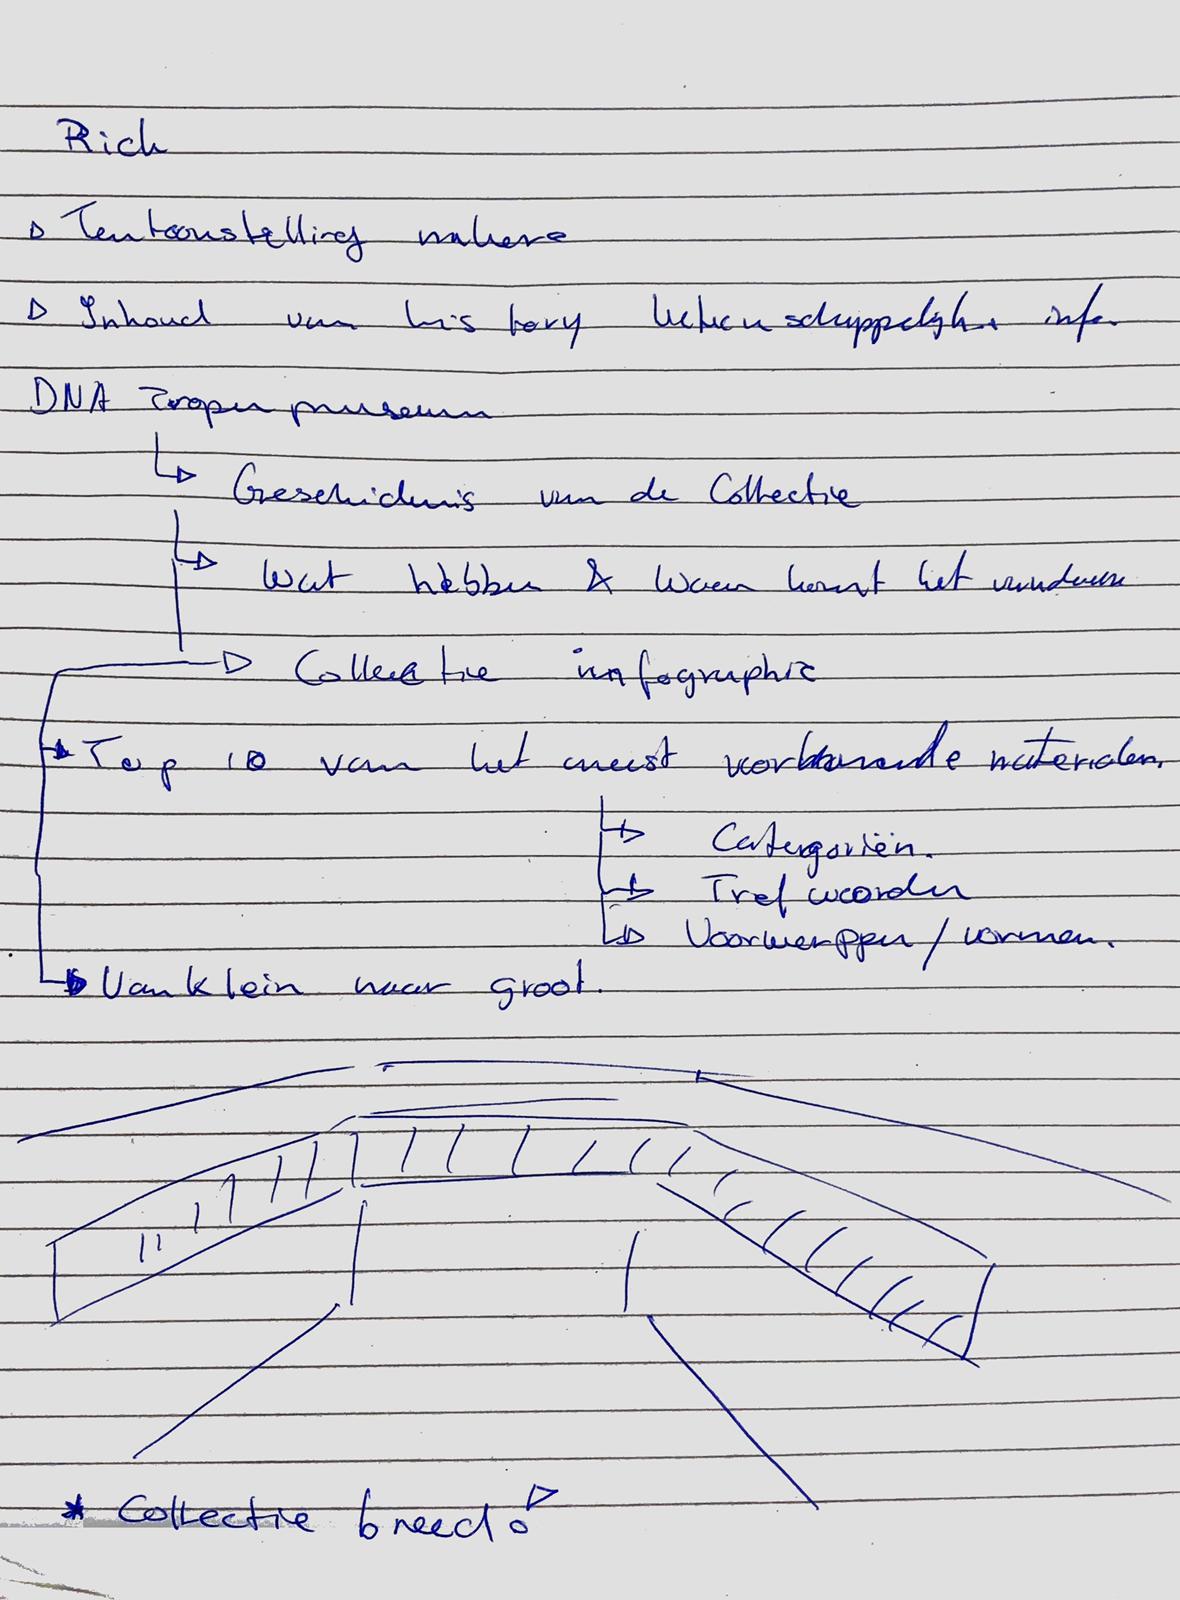 Rich
Tentoonstelling makers
Inhoud van history info
DNA Tropenmuseum
Geschidenis van de Collectie
Wat hebben & waar komt het vandaan
Collectie infographic
Top 10 van het meest materialen.
Catergoriën.
Trefwoorden
Voorwerppen / vormen.
Van klein naar groot.
* Collectie breed